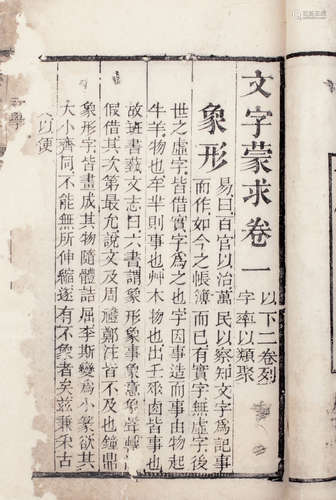 文字蒙求卷一
以下二卷列
字率以類聚
象形
易曰百官以治萬民以察知文字爲記事
而作如今之帳簿而已有實字無虛字後
世之虛字皆借實字爲之也字因事造而事由物起
牛羊物也牟羋則事也艸木物也出乇𠂹卤皆事也
故班書藝文志曰六書謂象形象事象意象聲轉注
假借其次第最允說文及周禮鄭注皆不及也鐘鼎
象形字皆畫成其物隨體詰屈李斯變爲小篆欲其
大小齊同不能無所伸縮遂有不象者矣兹兼采古
以便
學